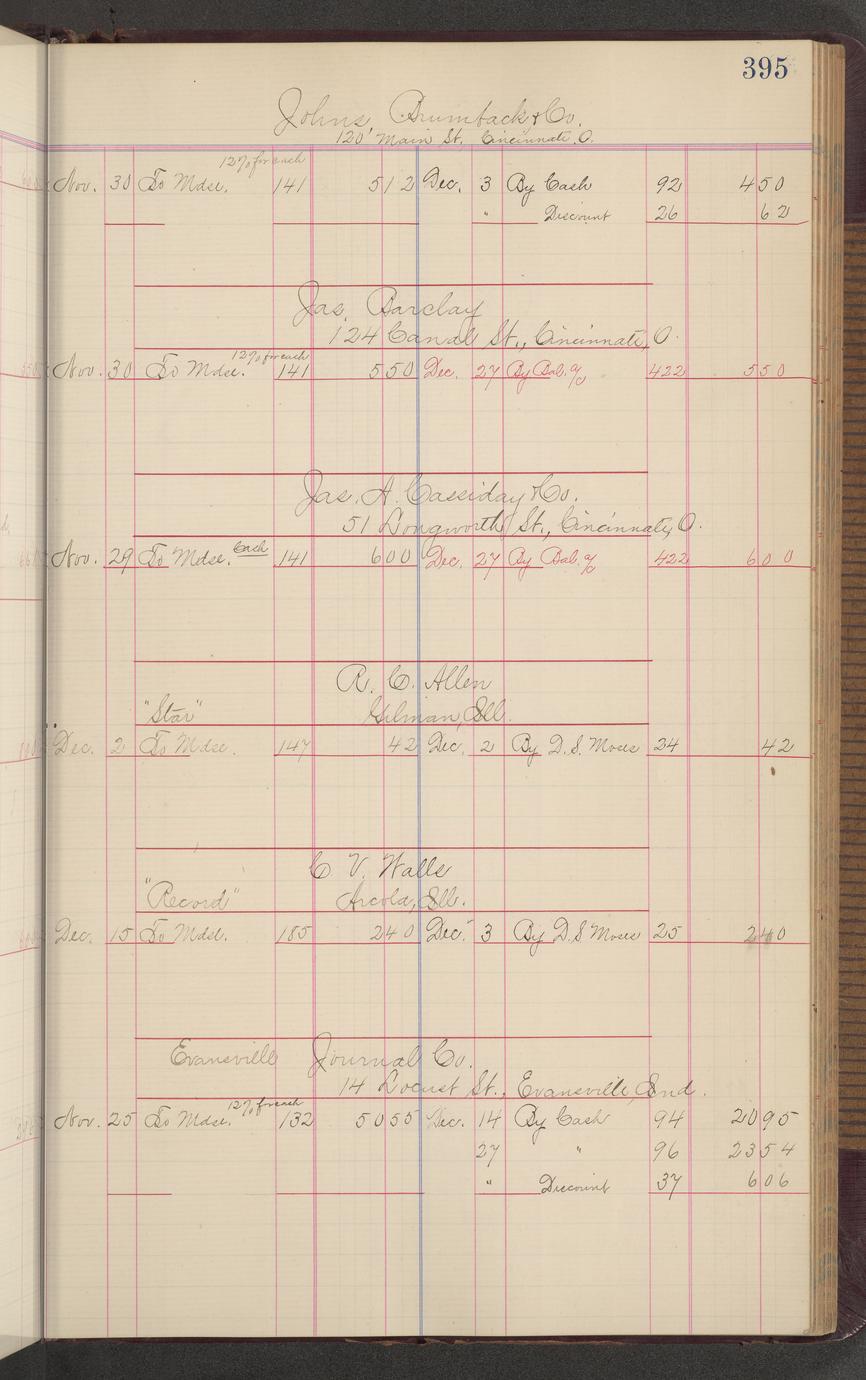 395
Johns, Brumback & Co.
120 Main St. Cincinnati. O.
12% for cash
Nov. 30 To Mdse. 141 512 Dec. 3 By Cash 92 450
" Discount 26 62
Jas. Barclay
124 Canal St., Cincinnati, O.
12% for cash
Nov. 30 To Mdse. 141 550 Dec. 27 By Bal. a/c 422 550
Jas. A. Cassiday & Co.
51 Longworth St., Cincinnati, O.
Nov. 29 To Mdse. Cash 141 600 Dec. 27 By Bal. a/c 422 600
R. C. Allen
"Star" Gilman, Ill.
Dec. 2 To Mdse. 147 42 Dec. 2 By D. S. Moses 24 42
C. V. Walls
"Record" Arcola, Ill.
Dec. 15 To Mdse. 185 240 Dec. 3 By D. S Moses 25 240
Evansville Journal Co.
14 Locust St., Evansville, Ind.
12% for cash
Nov. 25 To Mdse. 132 5055 Dec. 14 By Cash 94 2095
27 " 96 2354
" Discount 37 606